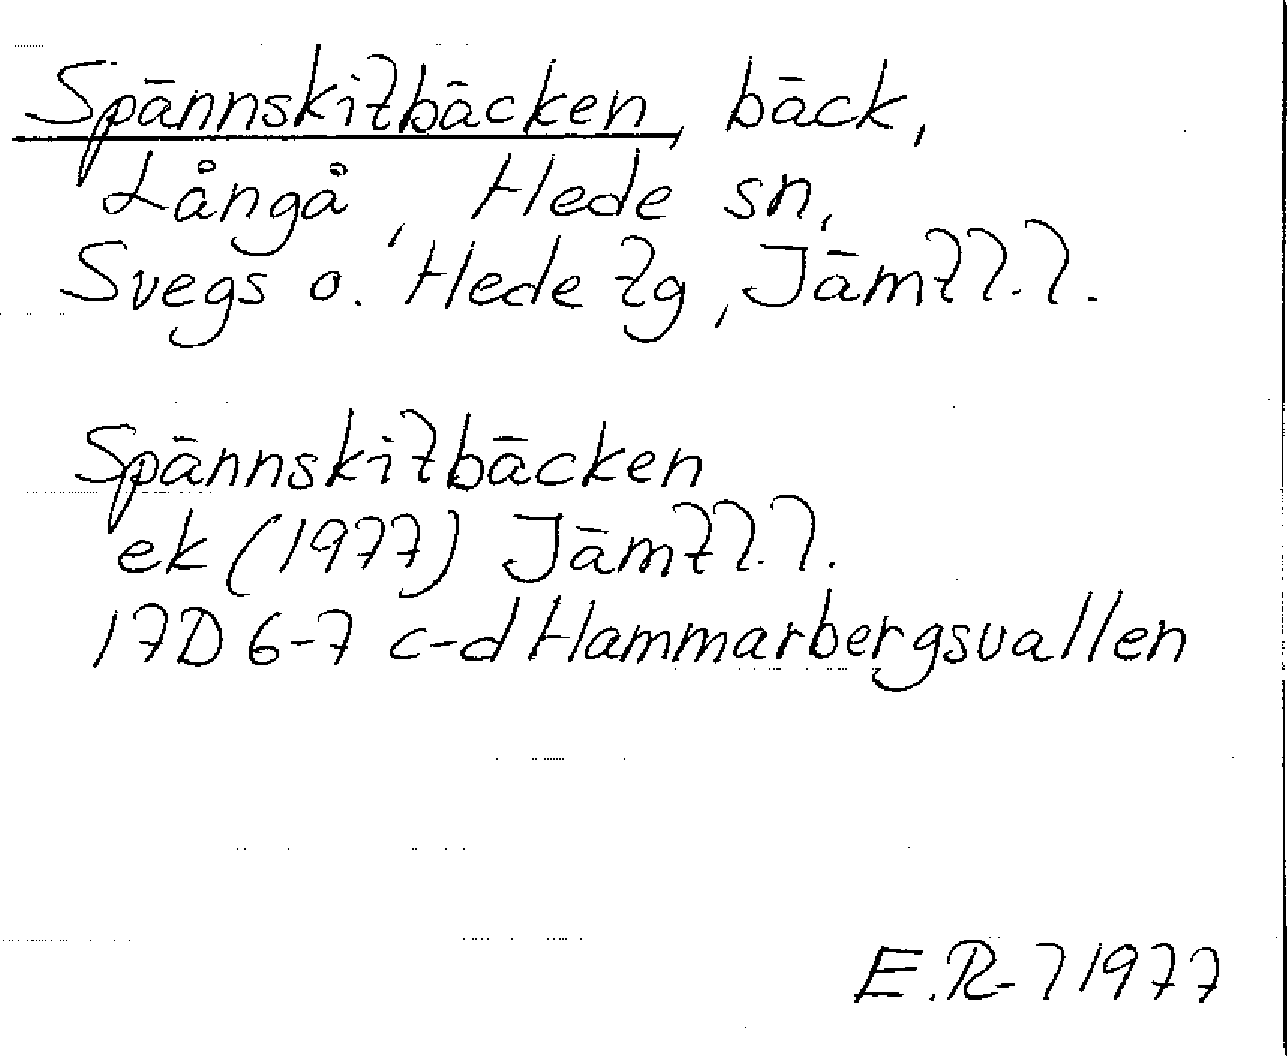 Spännskitbäcken, bäck,
Långå, Hede sn,
Svegs o. Hede tg, Jämtl.l.
Spännskitbäcken
ek (1977) Jämtl.l.
17D 6-7 c-d Hammarbergsvallen
E.R-l 1977